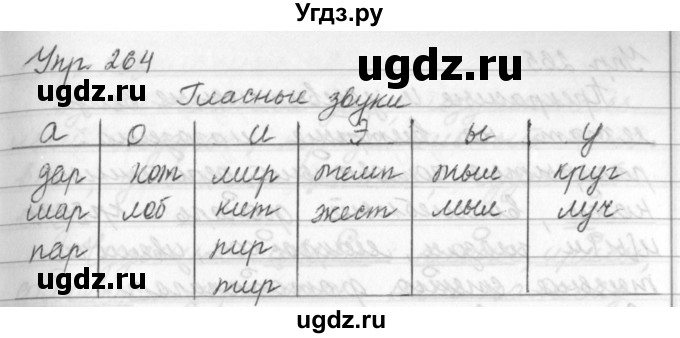 Угдз.ру
Упр. 264
ugdz.ru
ugdz.ru
Гласные звуки
а о и э ы у
дар кот мир темп тыл круг
шар лоб кит жест мыл луч
пар пир
тир
ugdz.ru
ugdz.ru
ugdz.ru